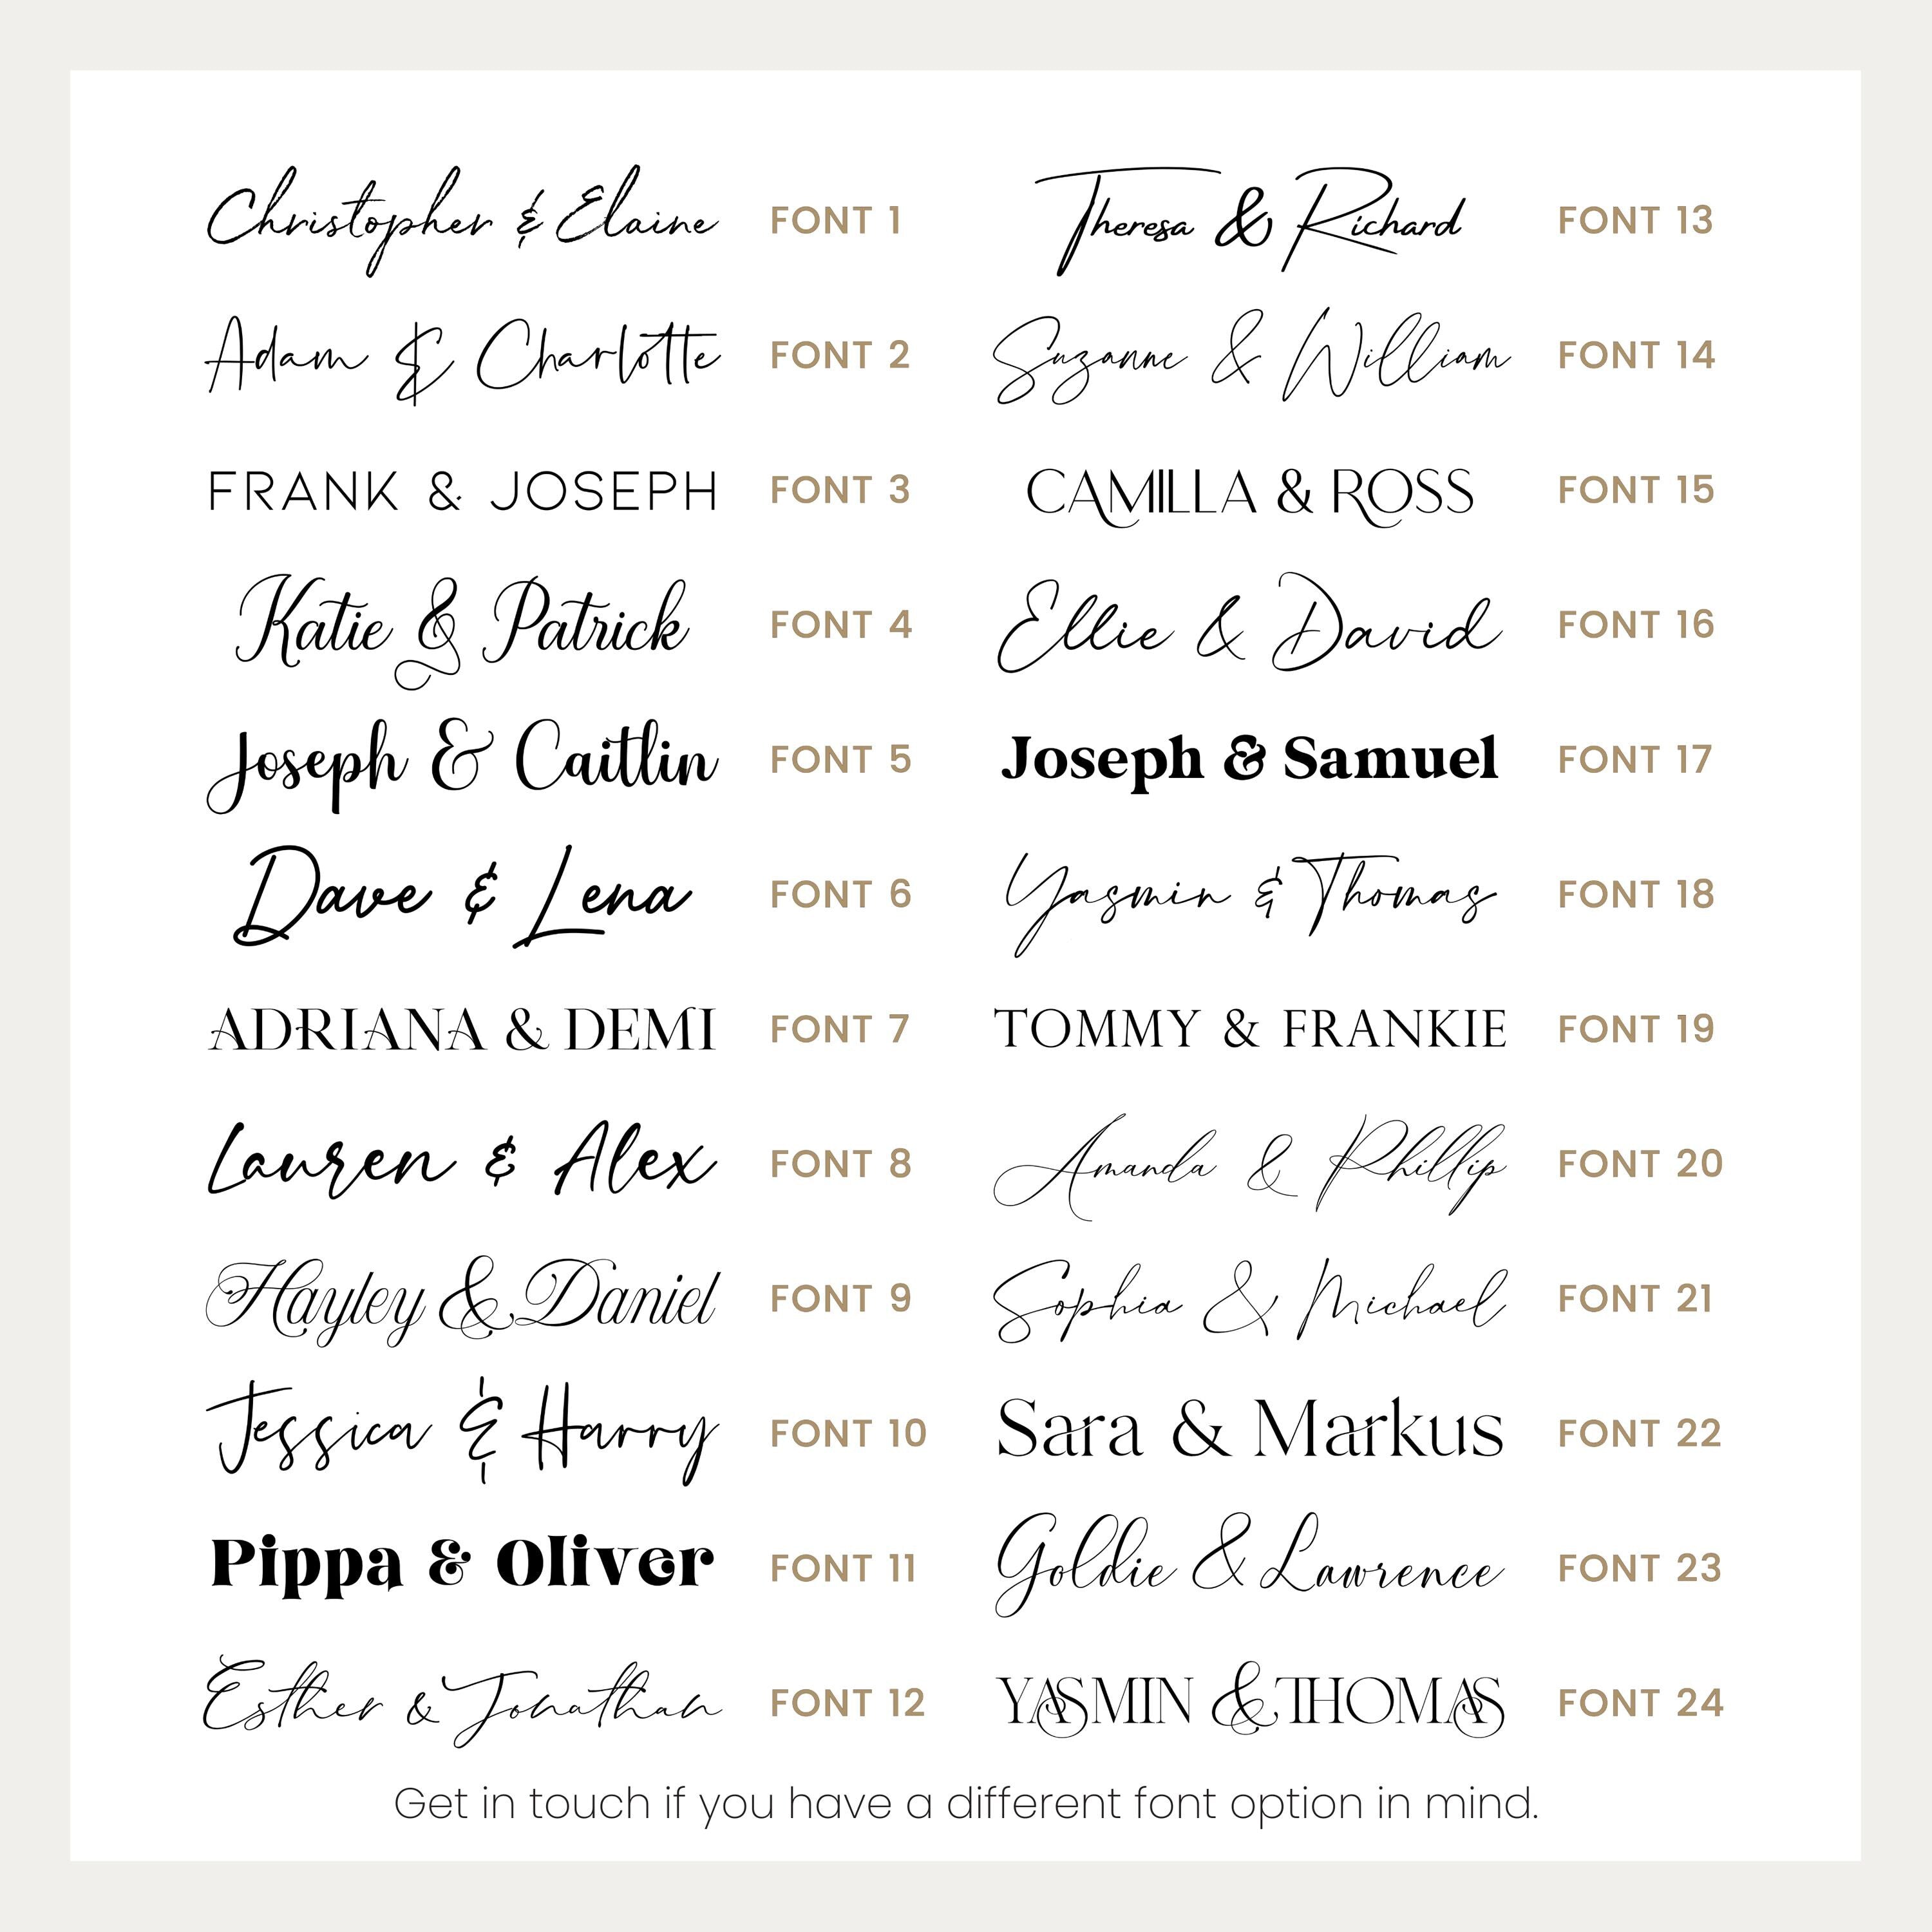 Christopher & Elaine FONT 1
Adam & Charlotte FONT 2
FRANK & JOSEPH FONT 3
Katie & Patrick FONT 4
Joseph & Caitlin FONT 5
Dave & Lena FONT 6
ADRIANA & DEMI FONT 7
Lauren & Alex FONT 8
Hayley & Daniel FONT 9
Jessica & Harry FONT 10
Pippa & Oliver FONT 11
Esther & Jonathan FONT 12
Theresa & Richard FONT 13
Suzanne & William FONT 14
CAMILLA & ROSS FONT 15
Ellie & David FONT 16
Joseph & Samuel FONT 17
Yasmin & Thomas FONT 18
TOMMY & FRANKIE FONT 19
Amanda & Phillip FONT 20
Sophia & Michael FONT 21
Sara & Markus FONT 22
Goldie & Lawrence FONT 23
YASMIN & THOMAS FONT 24
Get in touch if you have a different font option in mind.